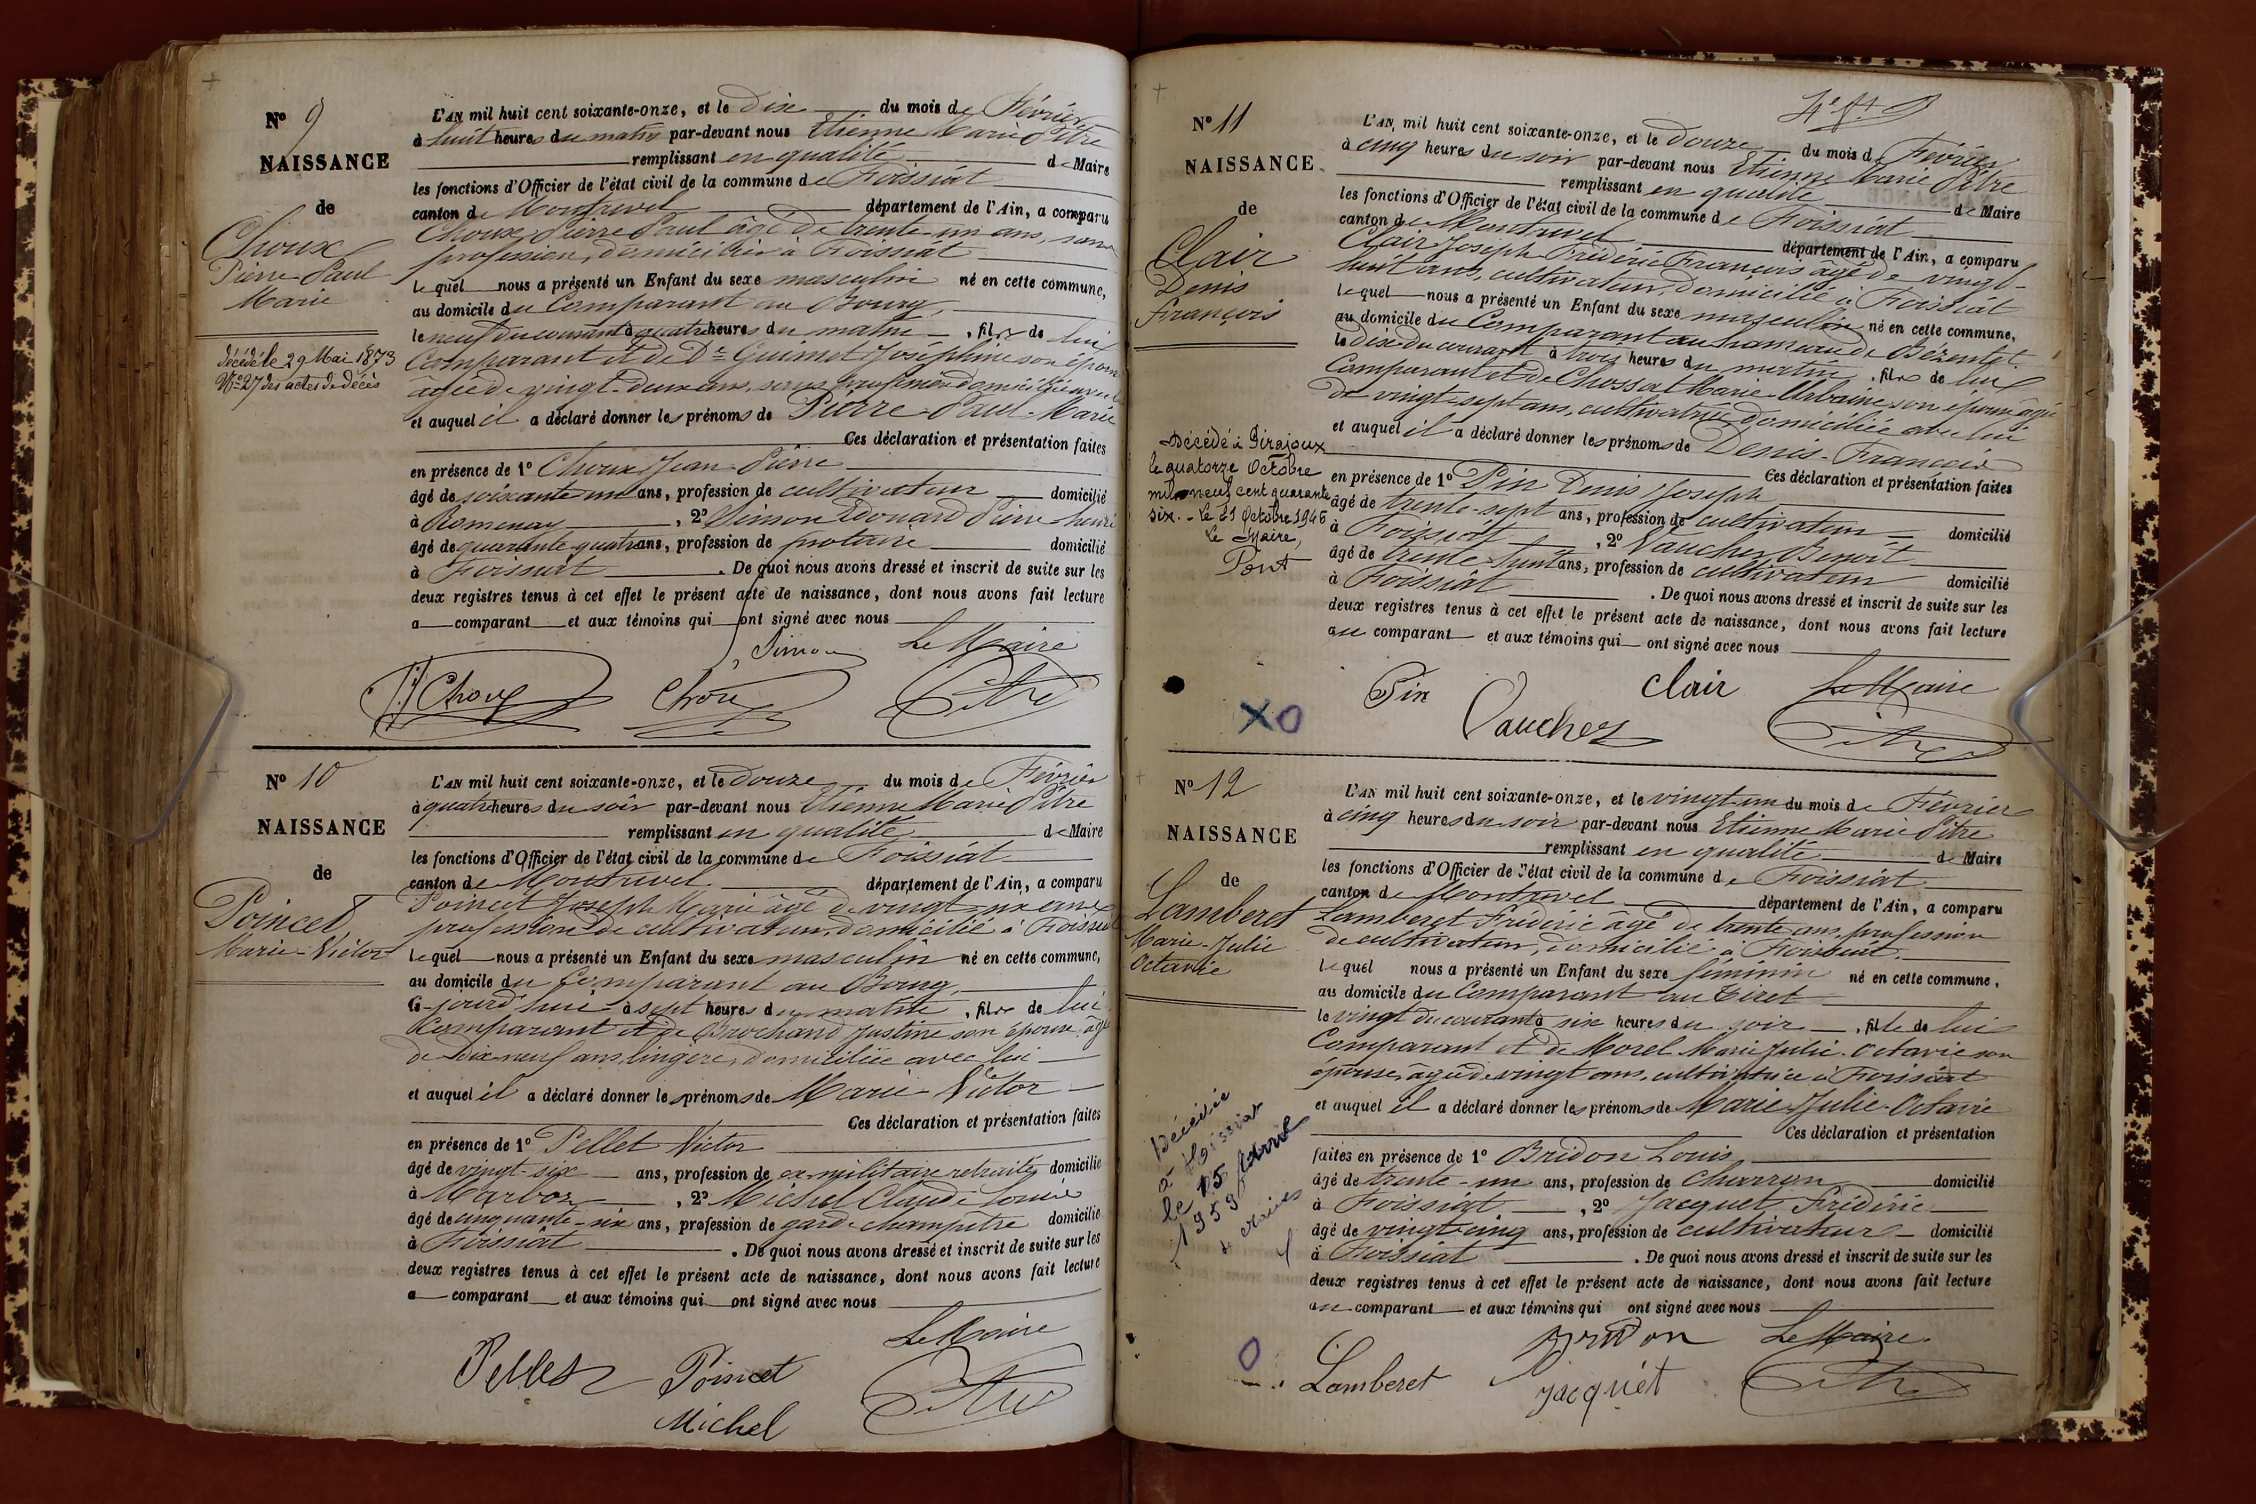 Nº 9
NAISSANCE
de
Choux
Pierre-Paul
Marie
décédé le 29 Mai 1873
Nº 27 des actes de décès
L'AN mil huit cent soixante-onze, et le dix du mois de Février
à huit heures du matin par-devant nous Etienne Marie Pitre
remplissant en qualité de Maire
les fonctions d'Officier de l'état civil de la commune de Foissiat
canton de Montrevel département de l'Ain, a comparu
Choux Pierre Paul âgé de trente-un ans, sans
profession, domicilié à Foissiat
lequel nous a présenté un Enfant du sexe masculin né en cette commune,
au domicile du Comparant au Bourg,
le neuf du courant à quatre heures du matin, fils de lui
Comparant et de De Guimet Joséphine son épouse
âgée de vingt-deux ans, sans profession domiciliée avec
et auquel il a déclaré donner les prénoms de Pierre-Paul-Marie
Ces déclaration et présentation faites
en présence de 1º Choux Jean-Pierre
âgé de soixante un ans, profession de cultivateur domicilié
à Romenay, 2º Simon Edouard Pierre henri
âgé de quarante-quatre ans, profession de notaire domicilié
à Foissiat. De quoi nous avons dressé et inscrit de suite sur les
deux registres tenus à cet effet le présent acte de naissance, dont nous avons fait lecture
a comparant et aux témoins qui ont signé avec nous
Simon Le Maire
Choux Choux Pitre
Nº 10
NAISSANCE
de
Poincet
Marie-Victor
L'AN mil huit cent soixante-onze, et le douze du mois de Février
à quatre heures du soir par-devant nous Etienne Marie Pitre
remplissant en qualité de Maire
les fonctions d'Officier de l'état civil de la commune de Foissiat
canton de Montrevel département de l'Ain, a comparu
Poincet Joseph Marie âgé de vingt six ans
profession de cultivateur, domicilié à Foissiat
lequel nous a présenté un Enfant du sexe masculin né en cette commune,
au domicile du Comparant au Bourg,
Ce jourd'hui à sept heures du matin, fils de lui
Comparant et de Brochand Justine son épouse âgée
de dix-neuf ans lingère, domiciliée avec lui
et auquel il a déclaré donner les prénoms de Marie-Victor
Ces déclaration et présentation faites
en présence de 1º Pellet Victor
âgé de vingt-six ans, profession de ex-militaire retraité domicilié
à Marboz, 2º Michel Claude Louis
âgé de cinquante-six ans, profession de garde champêtre domicilié
à Foissiat. De quoi nous avons dressé et inscrit de suite sur les
deux registres tenus à cet effet le présent acte de naissance, dont nous avons fait lecture
a comparant et aux témoins qui ont signé avec nous
Le Maire
Pellet Poincet Pitre
Michel
Nº 11
NAISSANCE
de
Clair
Denis
François
Décédé à Pirajoux
le quatorze Octobre
mil neuf cent quarante
six. - Le 21 Octobre 1946
Le Maire,
Pont
XO
L'AN mil huit cent soixante-onze, et le douze du mois de Février
à cinq heures du soir par-devant nous Etienne Marie Pitre
remplissant en qualité de Maire
les fonctions d'Officier de l'état civil de la commune de Foissiat
canton de Montrevel département de l'Ain, a comparu
Clair Joseph Frédéric François âgé de vingt-
huit ans, cultivateur, domicilié à Foissiat
lequel nous a présenté un Enfant du sexe masculin né en cette commune,
au domicile du Comparant au hameau de Bézentet
le dix du courant à trois heures du matin, fils de lui
Comparant et de Chossat Marie-Urbaine son épouse âgée
de vingt-sept ans, cultivatrice domiciliée avec lui
et auquel il a déclaré donner les prénoms de Denis-François
Ces déclaration et présentation faites
en présence de 1º Pin Denis Joseph
âgé de trente-sept ans, profession de cultivateur domicilié
à Foissiat, 2º Vaucher Benoît
âgé de trente-huit ans, profession de cultivateur domicilié
à Foissiat. De quoi nous avons dressé et inscrit de suite sur les
deux registres tenus à cet effet le présent acte de naissance, dont nous avons fait lecture
au comparant et aux témoins qui ont signé avec nous
Pin Clair Le Maire
Vaucher Pitre
Nº 12
NAISSANCE
de
Lamberet
Marie-Julie
Octavie
Décédée
à Foissiat
le 15 Avril
1959
O
L'AN mil huit cent soixante-onze, et le vingt-un du mois de Février
à cinq heures du soir par-devant nous Etienne Marie Pitre
remplissant en qualité de Maire
les fonctions d'Officier de l'état civil de la commune de Foissiat
canton de Montrevel département de l'Ain, a comparu
Lamberet Frédéric âgé de trente ans, profession
de cultivateur, domicilié à Foissiat.
lequel nous a présenté un Enfant du sexe féminin né en cette commune,
au domicile du Comparant au Tiret
le vingt du courant à six heures du soir, fille de lui
Comparant et de Morel Marie Julie-Octavie son
épouse, âgée de vingt ans, cultivatrice à Foissiat
et auquel il a déclaré donner les prénoms de Marie-Julie-Octavie
Ces déclaration et présentation
faites en présence de 1º Bridon Louis
âgé de trente-un ans, profession de charron domicilié
à Foissiat, 2º Jacquet Frédéric
âgé de vingt-cinq ans, profession de cultivateur domicilié
à Foissiat. De quoi nous avons dressé et inscrit de suite sur les
deux registres tenus à cet effet le présent acte de naissance, dont nous avons fait lecture
au comparant et aux témoins qui ont signé avec nous
Bridon Le Maire
Lamberet Jacquet Pitre